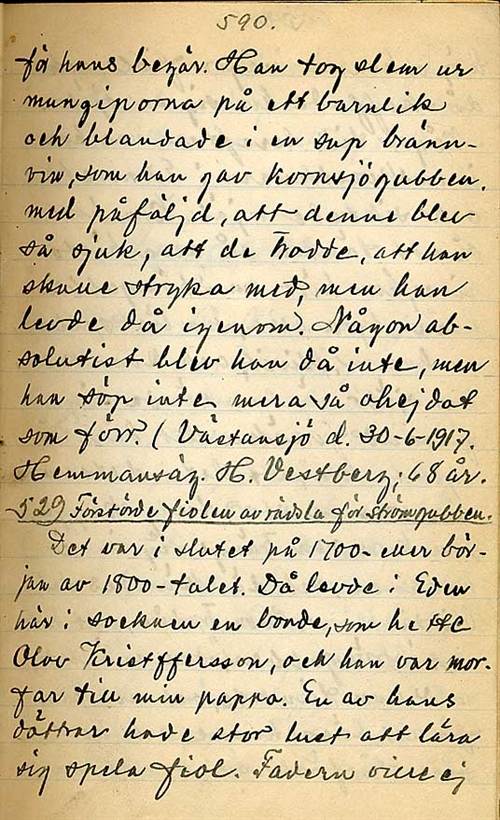 590.
för hans begär. Han tog slem ur
mungiporna på ett barnlik
och blandade i en sup bränn-
vin, som han gav Kornsjögubben,
med påföljd, att denne blev
så sjuk, att de trodde, att han
skulle stryka med, men han
levde då igenom. Någon ab-
solutist blev han då inte, men
han söp inte mera så ohejdat
som förr. (Västansjö d. 30-6-1917.
Hemmansäg. H. Vestberg; 68 år.
529 Förstörde fiolen av rädsla för strömgubben.
Det var i slutet på 1700- eller bör-
jan av 1800-talet. Då levde i Eden
här i socknen en bonde, som hette
Olov Kristffersson, och han var mor-
far till min pappa. En av hans
döttrar hade stor lust att lära
sig spela fiol. Fadern ville ej